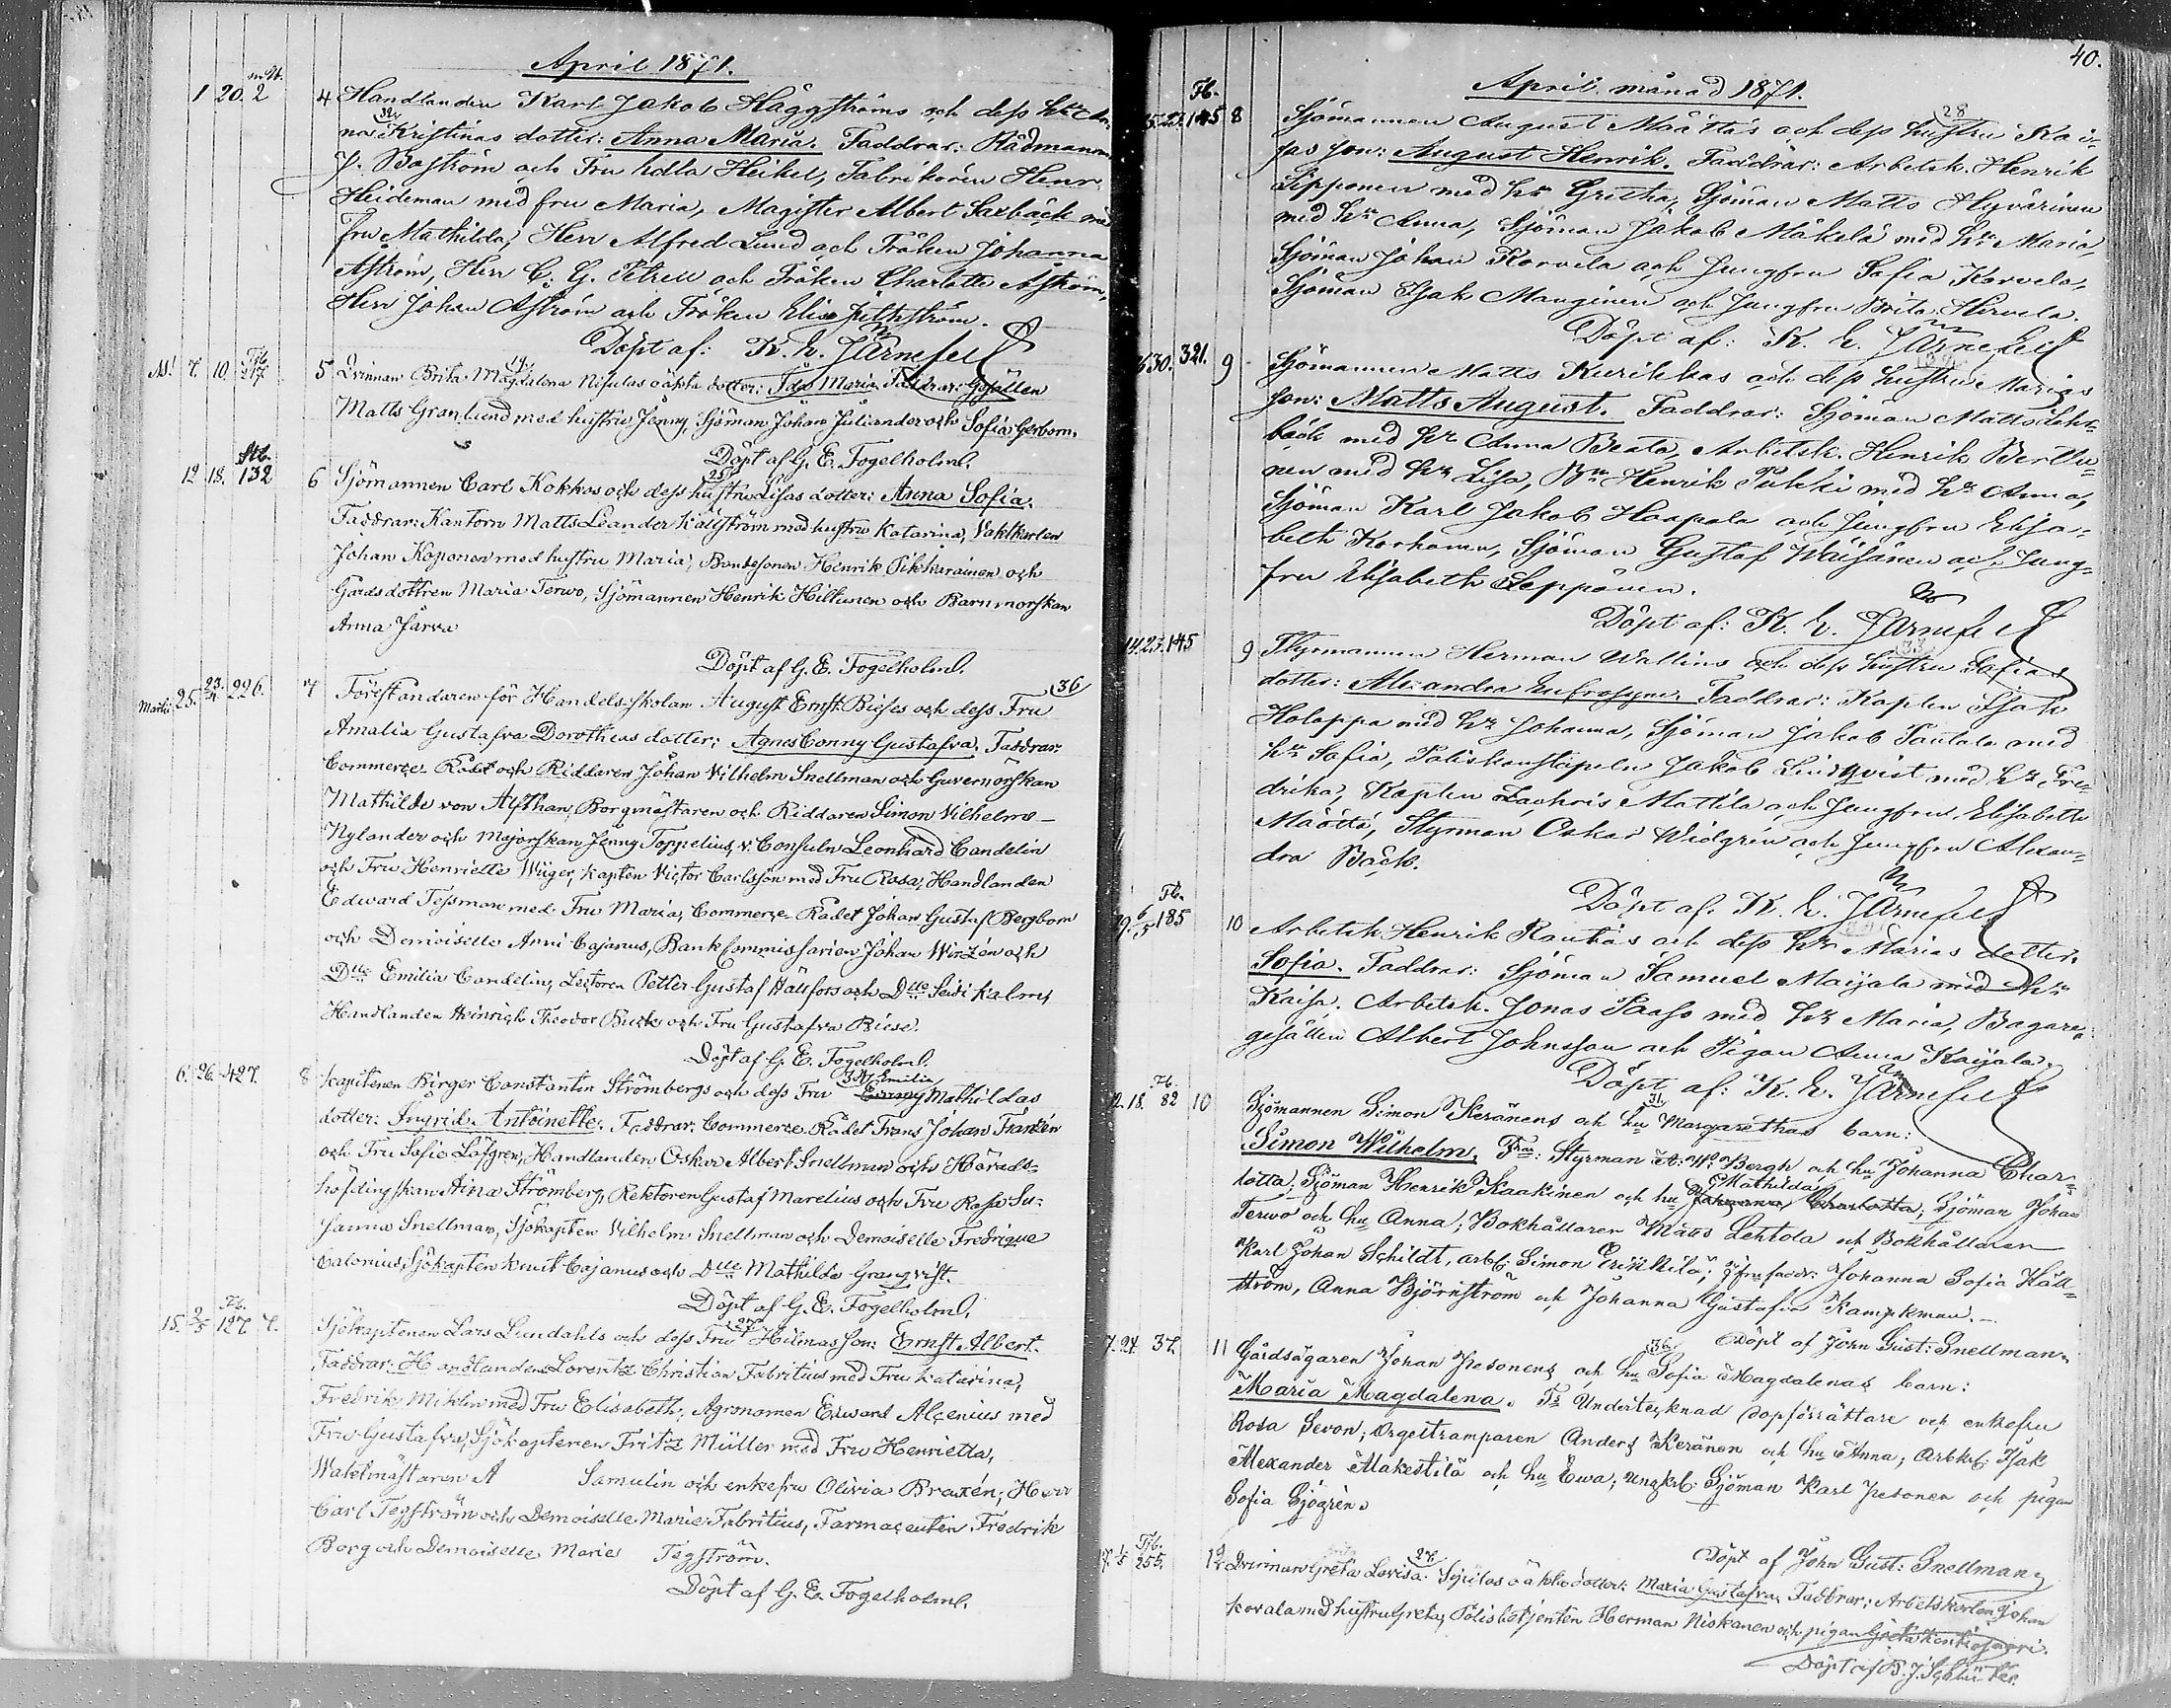 April 1871.
1 20. 2 4 Handlanden Karl Jakob Häggströms och dess hu An-
32
na Kristinas dotter: Anna Maria. Faddrar: Rådmannen
J. Boström och Fru Hilda Heikel, Fabrikören Henr.
Heideman med fru Maria, Magister Albert Saxbäck med
fru Mathilda, Herr Alfred Lund och Fröken Johanna
Åström, Herr C. G. Petrell och Fröken Charlotte Åström,
Herr Johan Åström och Fröken Elise
Döpt af: K. E. Järnefelt
7. 10. 217. 19.
5 Qvinnan Brita Magdalena oäkta dotter: Ida Maria. Faddrar: Gesällen
Matts Granlund med hustru Jenny, Sjöman Johan Juliander och Sofia Gerbom.
Döpt af G. E. Fogelholm.
12 18. 132 25
6 Sjömannen Carl Kokkos och dess hustru Lisas dotter: Anna Sofia.
Faddrar: Kantorn Matts Leander Källström med hustru Katarina, Vaktkarlen
Johan Koponen med hustru Maria, Bondesonen Henrik Pikkarainen och
Gårdsdottren Maria Terwo, Sjömannen Henrik Hiltunen och Barnmorskan
Anna Järva
Döpt af G. E. Fogelholm.
Martii 25. 23/4 226. 7 Föreståndaren för Handelsskolan August Ernst Bieses och dess Fru 36
Amalia Gustafva Dorotheas dotter: Agnes Conny Gustafva. Faddrar:
Commerce Rådet och Riddaren Johan Vilhelm Snellman och Guvernörskan
Mathilde von Alfthan, Borgmästaren och Riddaren Simon Vilhelm
Nylander och Majorskan Jenny Toppelius, v. Consuln Leonhard Candelin
och Fru Henriette Wüger, Kapten Victor Carlsson med Fru Rosa, Handlanden
Edward Tessman med Fru Maria, Commerce Rådet Johan Gustaf Bergbom
och Demoiselle Anni Cajanus, Bank Commissarien Johan Winzén och
Dlle Emilia Candelin, Lectoren Petter Gustaf Hällfors och Dlle Seidi Kalm,
Handlanden Heinrich Theodor Buck och Fru Gustafva Biese.
Döpt af G. E. Fogelholm.
34 Emilia
6. 26. 427. 8 Kapitenen Birger Constantin Strömbergs och dess Fru Emmy Mathildas
dotter: Ingrid Antoinette. Faddrar: Commerce Rådet Frans Johan Franzén
och Fru Sofie Löfgren, Handlanden Oskar Albert Snellman och Härads-
höfdingskan Aina Strömberg, Rektoren Gustaf Marelius och Fru Rosa Su-
sanna Snellman, Sjökapten Vilhelm Snellman och Demoiselle Fredrique
Calonius, Sjökapten Knut Cajanus och Dlle Mathilda Granqvist.
Döpt af G. E. Fogelholm.
27
15. 2/5 127. 7. Sjökaptenen Lars Lundahls och dess Fru Hilmas son: Ernst Albert.
Faddrar: Handlanden Lorentz Christian Fabritius med Fru Katarina,
Fredrik Miklin med Fru Elisabeth, Agronomen Edward Alcenius med
Fru Gustafva, Sjökaptenen Fritz Müller med Fru Henrietta,
Waktmästaren A Samulin och enkefru Olivia Braxén; Herr
Carl Tegström och Demoiselle Marie Fabritius, Farmaceuten Fredrik
Borg och Demoiselle Marie Tegström.
Döpt af G. E. Fogelholm.
40.
April månad 1871.
Fb. 28
145 8 Sjömannen August Määttäs och dess hustru Kai-
sas son: August Henrik. Faddrar: Arbetsk. Henrik
Lipponen med hu Gretha, Sjöman Matts Hyvärinen
med hu Anna, Sjöman Jakob Mäkelä med hu Maria,
Sjöman Johan Korvela och Jungfru Sofia Korvela,
Sjöman Isak Manginen och Jungfru Brita Hirvela.
Döpt af: K. E. Järnefelt
30. 321. 9 Sjömannen Matts Kurikkas och dess hustru Marias
son: Matts August. Faddrar: Sjöman Matts Leht-
bäck med hu Anna Beata, Arbetsk. Henrik Bertlu-
nen med hu Lisa, Bn Henrik Puhki med hu Anna,
Sjöman Karl Jakob Haapala och Jungfru Elisa-
beth Korhonen, Sjöman Gustaf Wäisänen och Jung-
fru Elisabeth Seppänen.
Döpt af: K. E. Järnefelt
14. 23. 145 33
9 Styrmannen Herman Wallins och dess hustru Sofias
dotter: Alexandra Eufrosyne. Faddrar: Kapten Isak
Holappa med hu Johanna, Sjöman Jakob Pautala med
hu Sofia, Poliskonstapeln Jakob Lindqvist med hu Fre-
drika, Kapten Zachris Mattila och Jungfru Elisabeth
Määttä, Styrman Oskar Widgrén och Jungfru Alexan-
dra Bäck.
Döpt af: K. E. Järnefelt
Fb.
19. 6/5 185 10 Arbetsk Henrik Rautias och dess hu Marias dotter:
Sofia. Faddrar: Sjöman Samuel Maijala med hu
Kaisa, Arbetsk. Jonas Paaso med hu Maria, Bagare-
gesällen Albert Johnsson och Pigan Anna Kaijala.
Döpt af: K. E. Järnefelt
Fb. 31.
12. 18. 82 10 Sjömannen Simon Keränens och hu Margarethas barn:
Simon Wilhelm. Frar: Styrman A. W. Bergh och hu Johanna Char-
lotta; Sjöman Henrik Kaakinen och hu Mathilda Johanna Charlotta; Sjöman Johan
Terwo och hu Anna; Bokhållaren Matts Lehtola och Bokhållaren
Karl Johan Schildt, arbk. Simon Erikkilä; jfru faddr: Johanna Sofia Häll-
ström, Anna Björnström och Johanna Gustafva Kampkman.
Döpt af John Gust: Snellman.
36
7. 24. 37. 11 Gårdsägaren Johan Ipetonens och hu Sofia Magdalenas barn:
Maria Magdalena. Fr Undertecknad dopförrättare och enkefru
Rosa Sevon; Orgeltramparen Anders Keränen och hu Anna; Arbk. Isak
Alexander Makestilä och hu Ewa; ungk. Sjöman Karl Ipetonen och pigan
Sofia Sjögrén.
Döpt af John Gust: Snellman
27
1/5 255. 12 Qvinnan Greta Lovisa oäkta dotter: Maria Gustafva. Faddrar: Arbetskarlen Johan
Kovala med hustru Greta, Polisbetjenten Herman Niskanen och pigan Greta
Döpt af B. J.